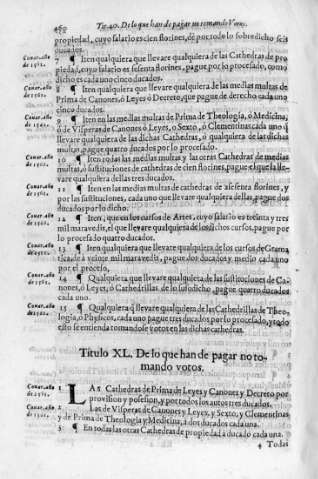 Tit. 40. De lo que han de pagar no tomando Votos
propiedad, cuyo salario es cien florines, dé por todo lo sobredicho seis
ducados.
7 ¶ Iten qualquiera que llevare qualquiera de las Cathedras de pro
piedad, cuyo salario es sesenta florines, pague por lo procesado, como
dicho es cada uno cinco ducados.
8 ¶ Iten qualquiera que llevare qualquiera de las medias multas de
Prima de Canones, ó Leyes ó Decreto, que pague de derecho cada uno
cinco ducados.
9 ¶ Iten en las medias multas de Prima de Theologia, ó Medicina,
ó de Visperas de Canones ó Leyes, o Sexto, ó Clementinas cada uno q̃
llevare qualquiera de las dichas Cathedras, ó qualquiera de las dichas
multas, pague quatro ducados por lo procesado.
10 ¶ Iten todas las medias multas y las otras Cathedras de medias
multas, ó sustituciones de cathedras de cien florines, pague el que la lle-
vare qualquiera dellas tres ducados.
11 ¶ Iten en las medias multas de cathedras de a sesenta florines, y
por las sustituciones, cada uno que llevare qualquiera dellas, pague dos
ducados por lo dicho.
12 ¶ Iten, que en los cursos de Artes, cuyo salario es treinta y tres
mil maravedis, el que llevare qualquiera de los dichos cursos, pague por
lo procesado quatro ducados.
13 ¶ Iten qualquiera que llevare qualquiera de los cursos de Grama
tica de á veinte mil maravedis, pague dos ducados y medio cada uno
por el proceso,
14 ¶ Qualquiera que llevare qualquiera de las sustituciones de Ca-
nones, ó Leyes, ó Cathedrillas de lo susodicho, pague quatro ducados
cada uno.
15 ¶ Qualquiera q̃ llevare qualquiera de las Cathedrillas de Theo-
logia, o Physicos, cada uno pague tres ducados por lo procesado, y todo
esto se entienda tomandose votos en las dichas cathedras.
Titulo XL. De lo que han de pagar no to-
mando votos.
1 LAS Cathedras de Prima de Leyes y Canones y Decreto por
provision y posesion, y por todos los autos tres ducados.
2 Las de Visperas de Canones y Leyes, y Sexto, y Clementinas
y de Prima de Theologia y Medicina, á dos ducados cada una.
3 ¶ En todas las otras Cathedras de propiedad á ducado cada una.
4 Todas